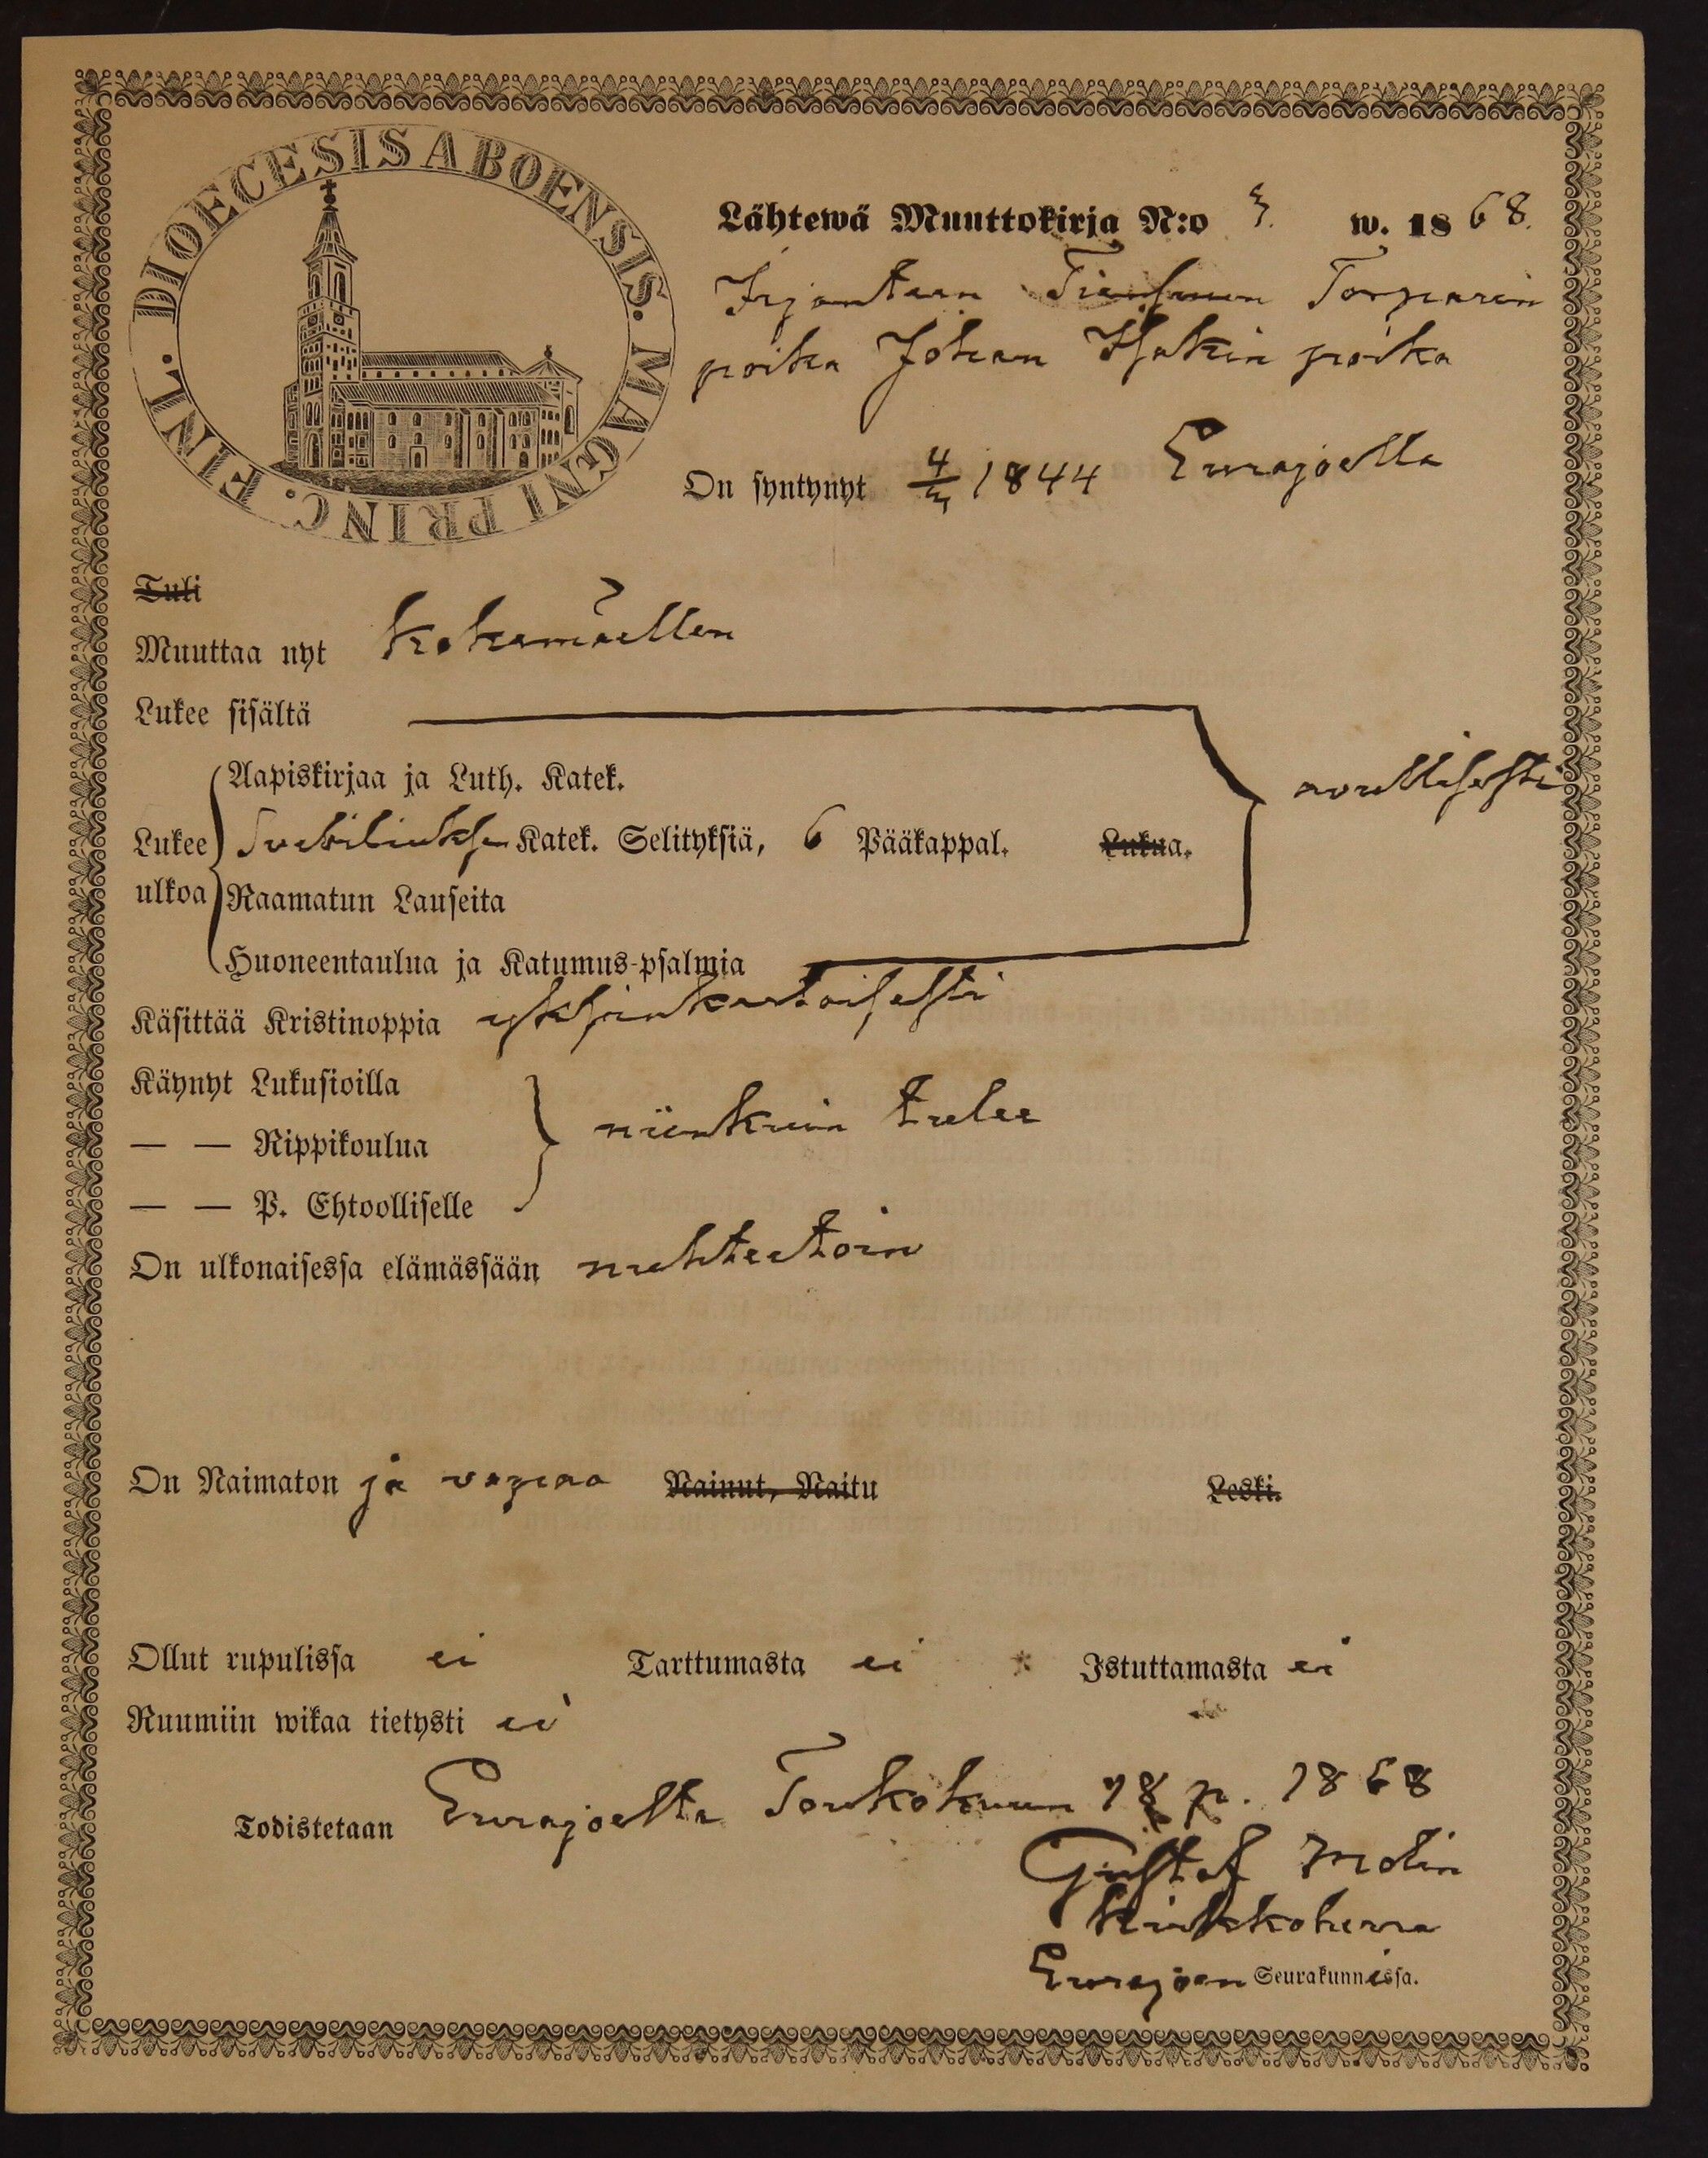 DIOECESIS ABOENSIS. MAGNI PRINC. FINL.
Lähtewä Muuttokirja N:o 3. w. 1868.
Irjantaan Torparin
poika Johan Isakin poika
On syntynyt 4/3 1844 Eurajoella
Tuli
Muuttaa nyt Kokemäellen
Lukee sisältä
Aapiskirjaa ja Luth. Katek.
avullisesti
Lukee ulkoa Svebiliuksen Katek. Selityksiä, 6 Pääkappal. Lukua.
Raamatun Lauseita
Huoneentaulua ja Katumus-psalmia
Käsittää Kristinoppia yksinkertaisesti
Käynyt Lukusioilla
— — Rippikoulua niinkuin tulee
— — P. Ehtoolliselle
On ulkonaisessa elämässään nuhteetoin
On Naimaton ja vapaa Nainut, Naitu Leski.
Ollut rupulissa ei Tarttumasta ei Istuttamasta ei
Ruumiin wikaa tietysti ei
Todistetaan Eurajoelta Toukokuun 18 p. 1868
Gustaf Molin
Kirkkoherra
Eurajoen Seurakunnissa.